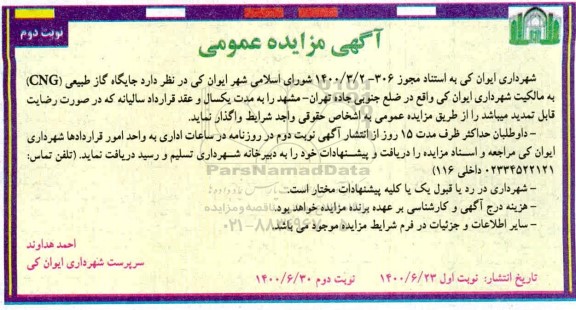 نوبت دوم
آگهی مزایده عمومی
شهرداری ایوان کی به استناد مجوز ۳۰۶- ۱۴۰۰/۳/۲ شورای اسلامی شهر ایوان کی در نظر دارد جایگاه گاز طبیعی (CNG)
به مالکیت شهرداری ایوان کی واقع در ضلع جنوبی جاده تهران- مشهد را به مدت یکسال و عقد قرارداد سالیانه که در صورت رضایت
قابل تمدید میباشد را از طریق مزایده عمومی به اشخاص حقوقی واجد شرایط واگذار نماید.
- داوطلبان حداکثر ظرف مدت ۱۵ روز از انتشار آگهی نوبت دوم در روزنامه در ساعات اداری به واحد امور قراردادها شهرداری
ایوان کی مراجعه و اسناد مزایده را دریافت و پیشنهادات خود را به دبیرخانه شهرداری تسلیم و رسید دریافت نماید. (تلفن تماس:
۰۲۳۳۴۵۲۲۱۲۱ داخلی ۱۱۶)
ParsNamadData
- شهرداری در رد یا قبول یک یا کلیه پیشنهادات مختار است.
- هزینه درج آگهی و کارشناسی بر عهده برنده مزایده خواهد بود.
- سایر اطلاعات و جزئیات در فرم شرایط مزایده موجود می باشد.
احمد هداوند
سرپرست شهرداری ایوان کی
تاریخ انتشار: نوبت اول ۱۴۰۰/۶/۲۳ نوبت دوم ۱۴۰۰/۶/۳۰